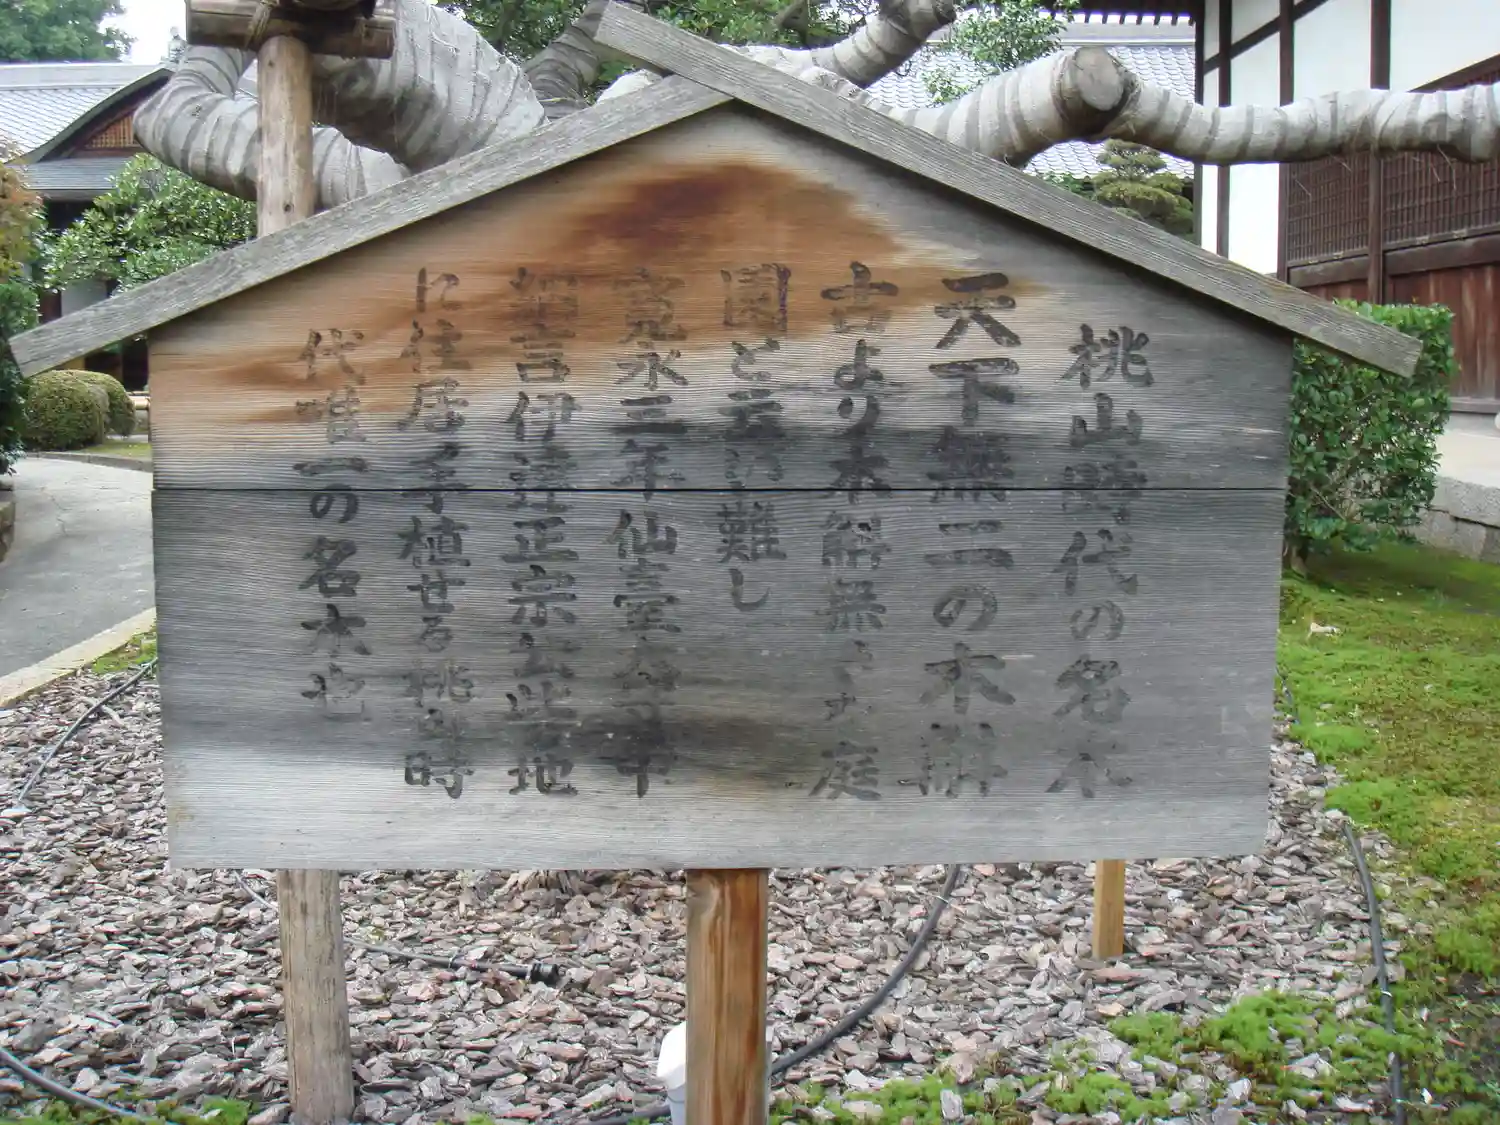 桃山時代の名木
天下無二の木斛
古より木斛無き庭
園と云ひ難し
寛永三年仙臺大守中
細言伊達正宗公此地
に住居手植せる桃山時
代唯一の名木也